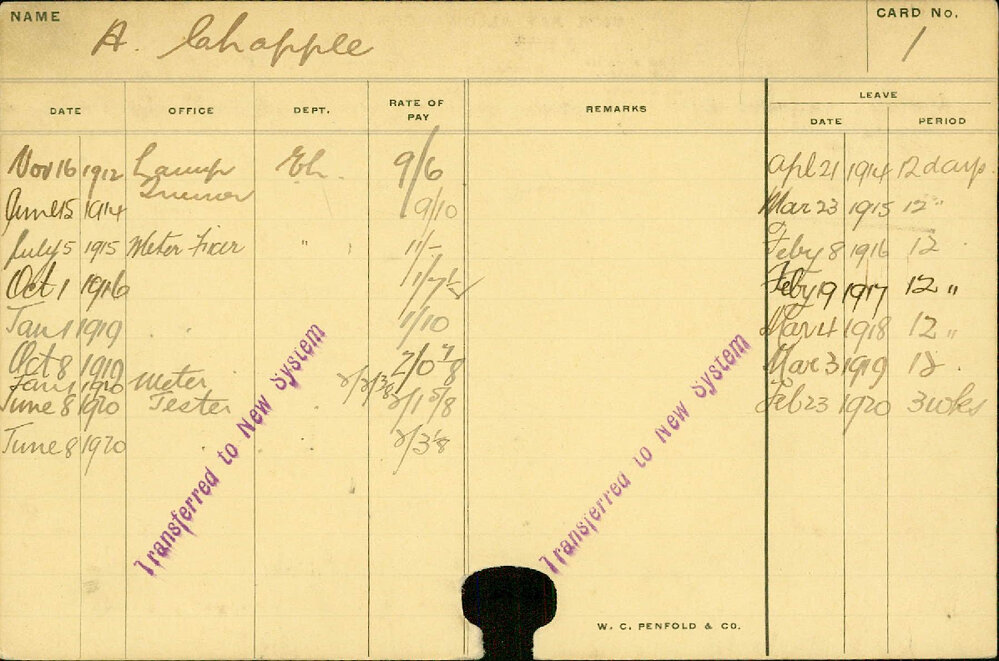 NAME A. Chapple CARD No. 1
DATE OFFICE DEPT. RATE OF PAY REMARKS LEAVE
DATE PERIOD
Nov 16 1912 Lamp Trimmer 9/6 Apl 21 1914 12 days
June 15 1914 9/10 Mar 23 1915 12 "
July 5 1915 Meter Fixer " 11/- Feby 8 1916 12
Oct 1 1916 1/7½ Feby 19 1917 12 "
Jan 1 1919 1/10 Mar 4 1918 12 "
Oct 8 1919 2/0 7/8 Mar 3 1919 12
Jan 1 1920 Meter
June 8 1920 Tester 2/1 5/8 Feb 23 1920 3 wks
June 8 1920 2/3 1/8
Transferred to New System
Transferred to New System
W. C. PENFOLD & CO.